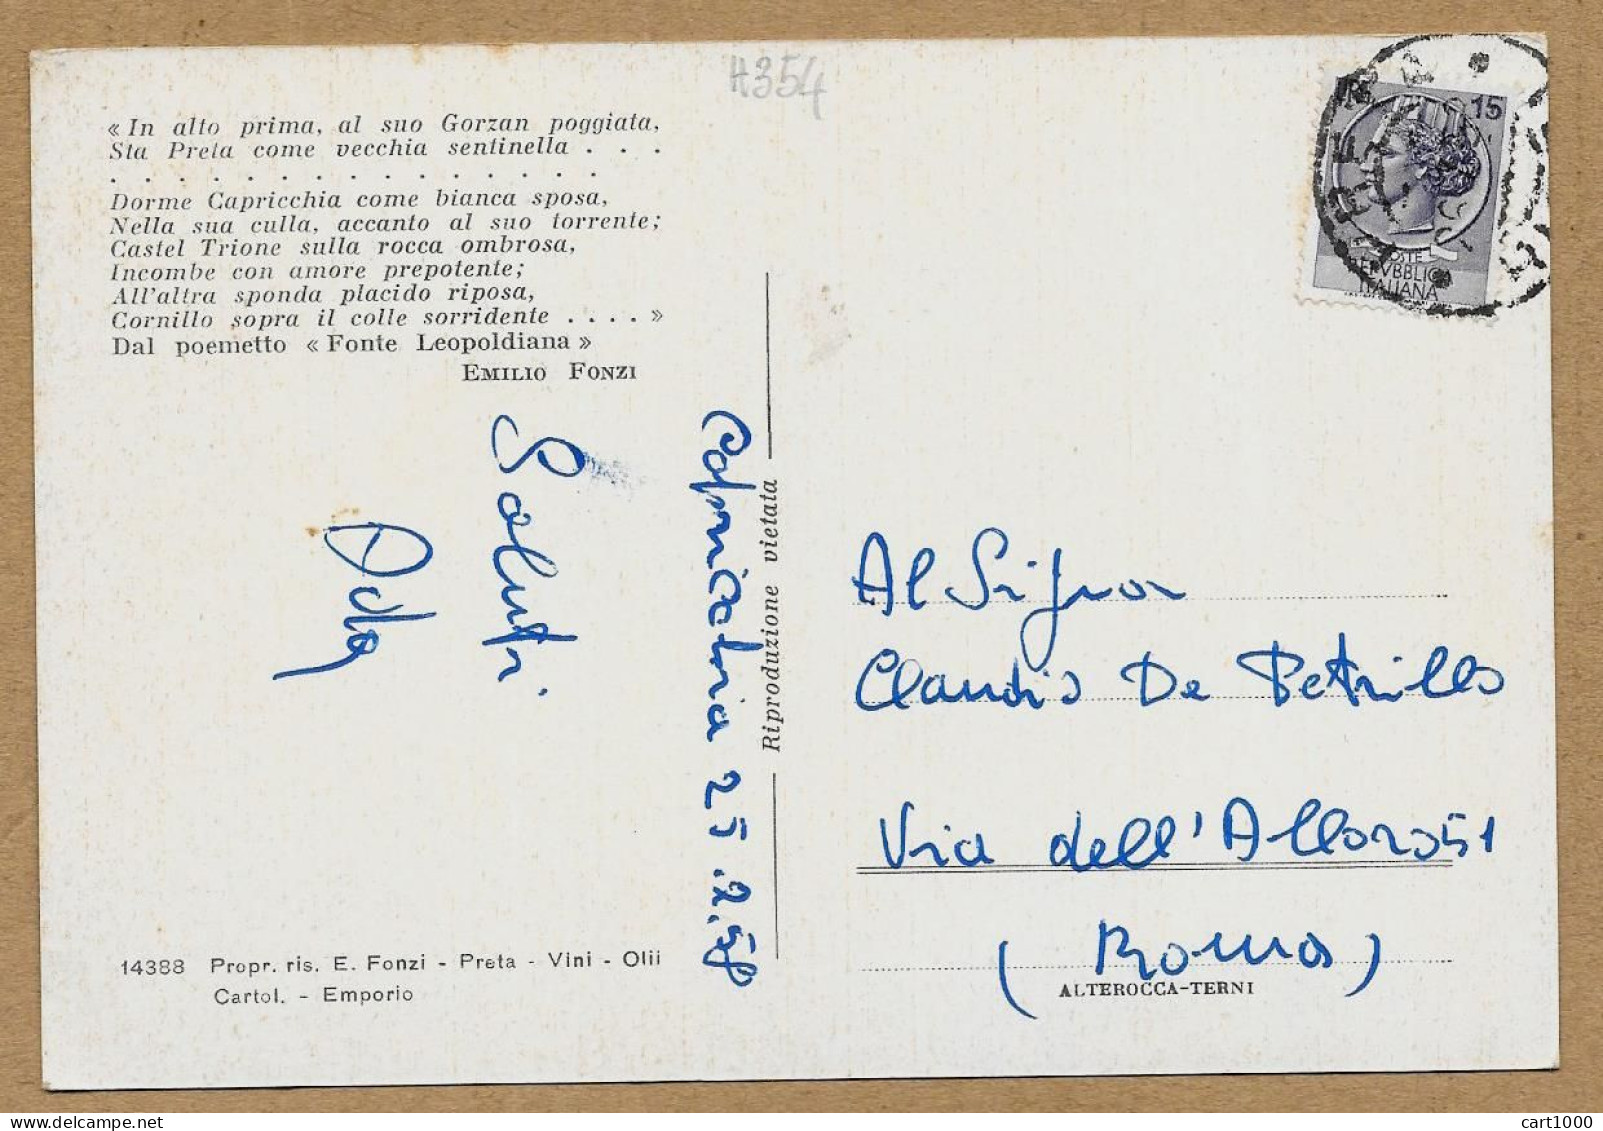 A354
« In alto prima, al suo Gorzan poggiata,
Sta Preta come vecchia sentinella . . .
. . . . . . . . . . . . . . .
Dorme Capricchia come bianca sposa,
Nella sua culla, accanto al suo torrente;
Castel Trione sulla rocca ombrosa,
Incombe con amore prepotente;
All'altra sponda placido riposa,
Cornillo sopra il colle sorridente . . . . »
Dal poemetto « Fonte Leopoldiana »
EMILIO FONZI
15
POSTE
REPVBBLICA
ITALIANA
Saluti
Ada
Riproduzione vietata
Al Signor
Claudio De Petrillo
Via dell'Alloro 51
(Roma)
14388 Propr. ris. E. Fonzi - Preta - Vini - Olii
Cartol. - Emporio
ALTEROCCA-TERNI
cart1000